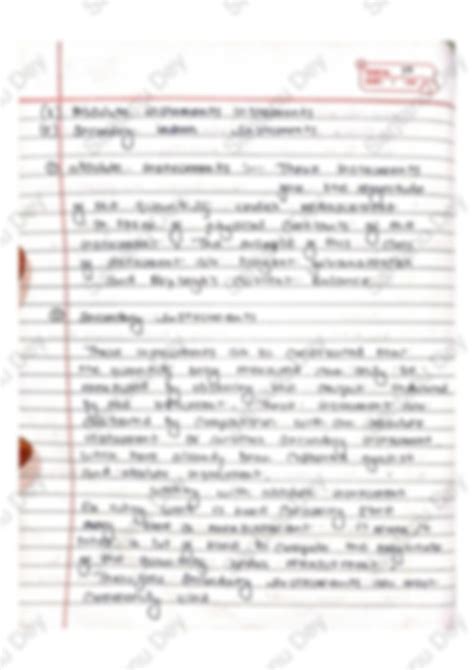 (1) Absolute instruments instruments
(2) Secondary instruments
① Absolute instruments :- These instruments
give the magnitude
of the quantity under measurement
in terms of physical constants of the
instrument. The example of this class
of instrument are tangent galvanometer
and Rayleigh's current balance.
② Secondary instruments
These instruments are so constructed that
the quantity being measured can only be
measured by observing the output indicated
by the instrument. These instruments are
calibrated by comparison with an absolute
instrument or another secondary instrument
which have already been calibrated against
and absolute instrument.
Working with absolute instrument
for routine work is
every time a measurement is made, it
takes a lot of time to compute the magnitude
of the quantity under measurement.
Therefore Secondary instruments are most
Commonly used